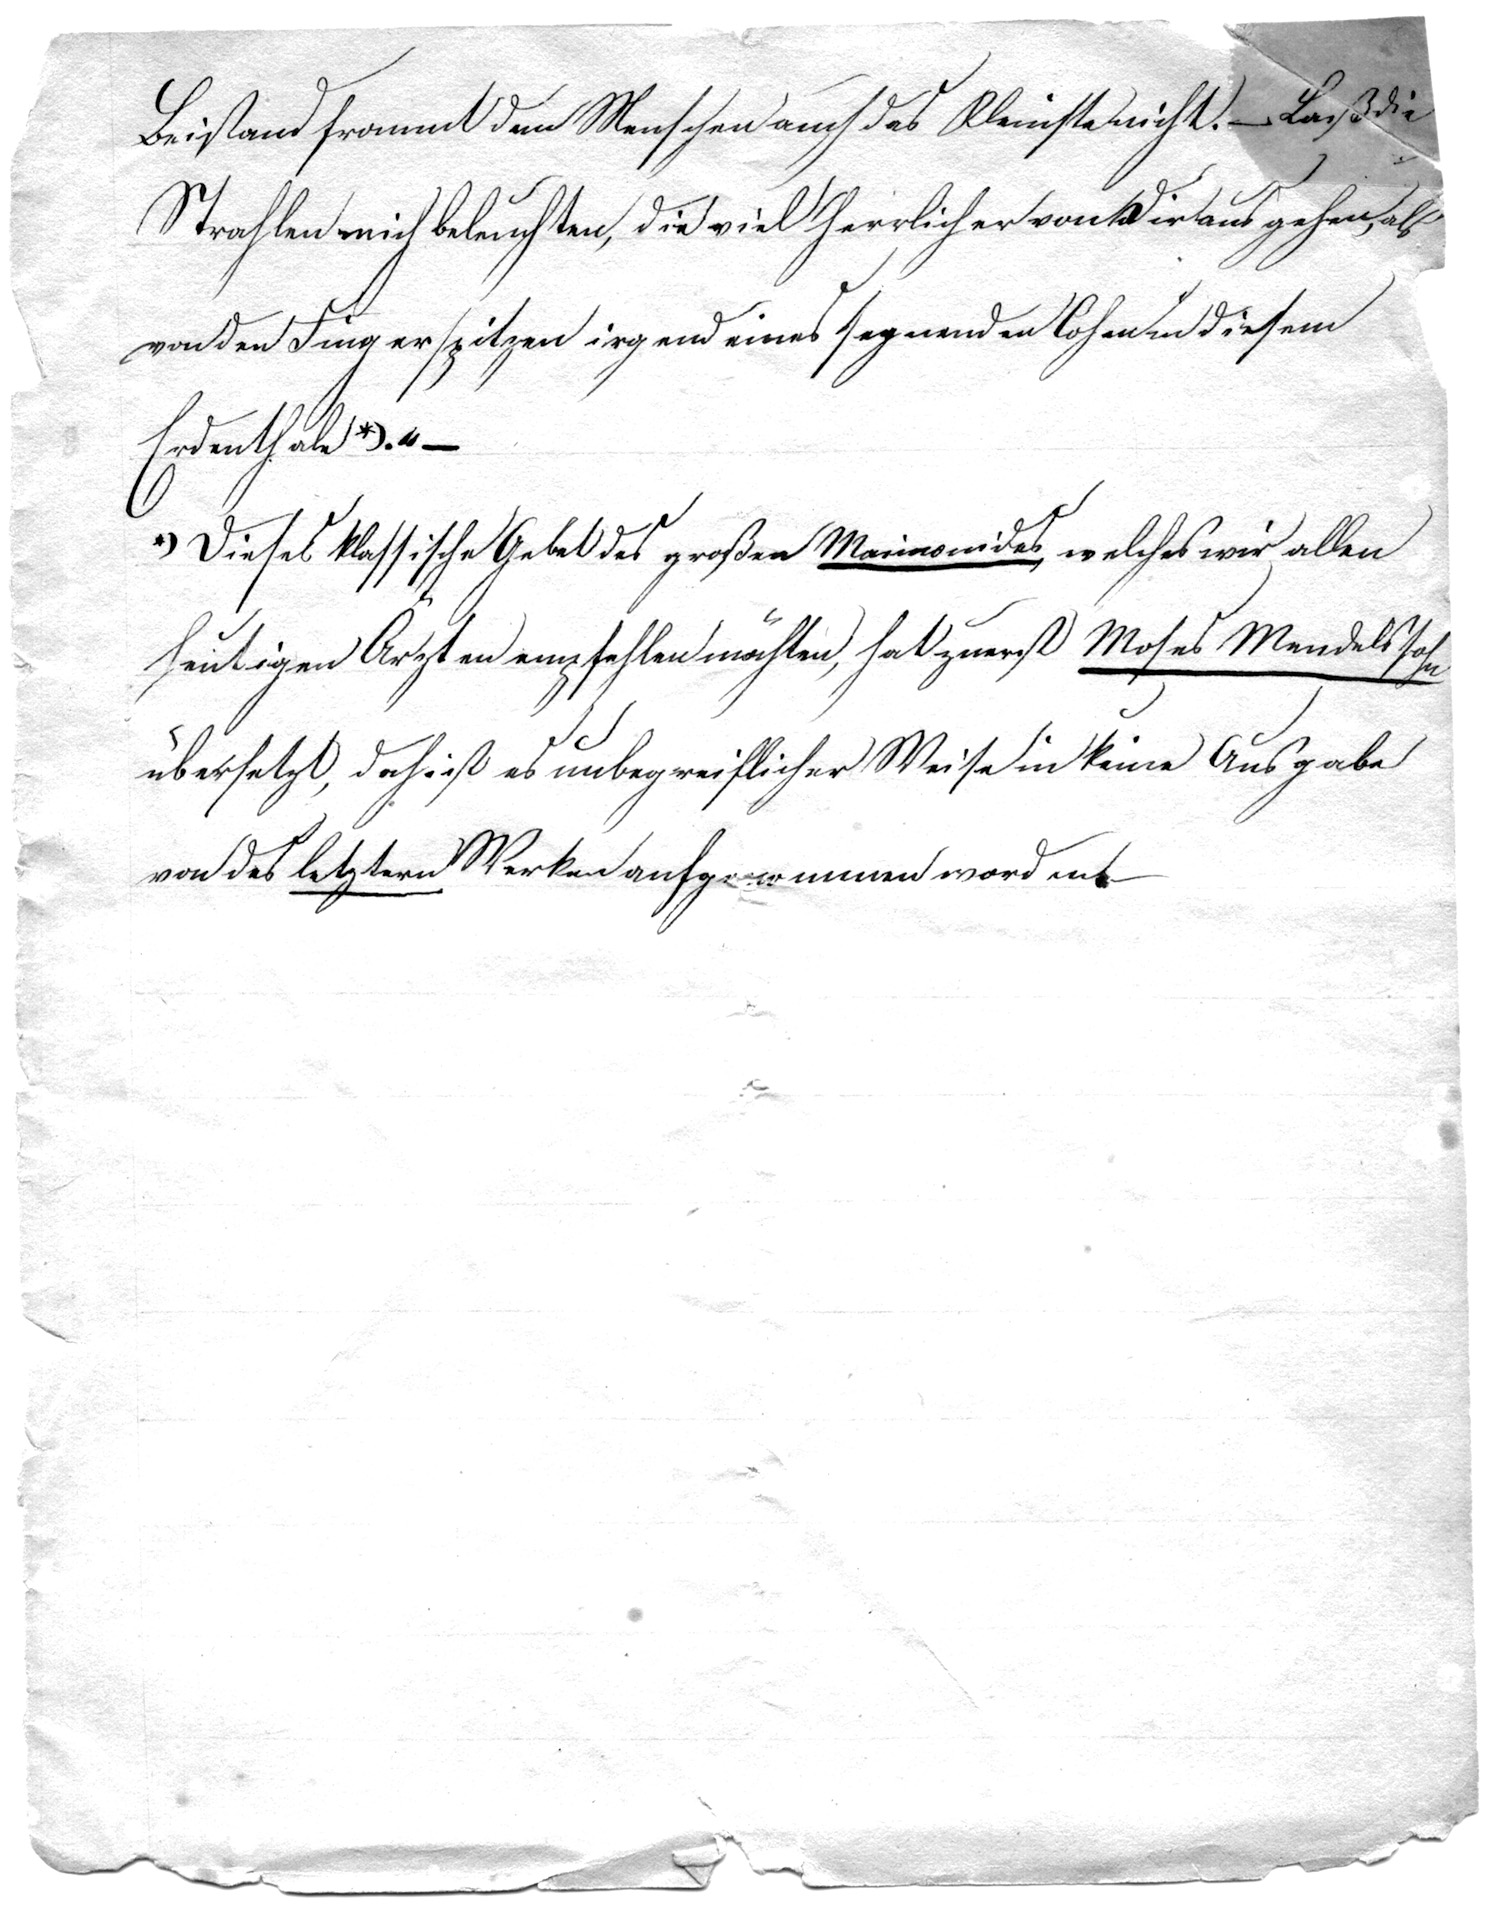 Beistand frommt dem Menschen auch das Kleinste nicht. — Laß die
Strahlen mich beleuchten, die viel herrlicher von Dir ausgehen, als
von den Fingerspitzen irgend eines segnenden Cohen in diesem
Erdenthale *)." —
*) Dieses klassische Gebet des großen Maimonides, welches wir allen
heutigen Ärzten empfehlen möchten, hat zuerst Moses Mendelssohn
übersetzt, doch ist es unbegreiflicher Weise in keine Ausgabe
von des letztern Werken aufgenommen worden. —